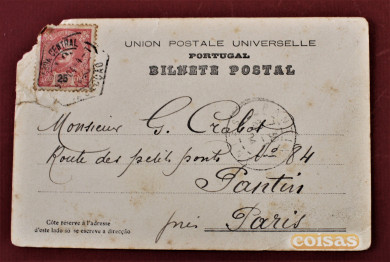 UNION POSTALE UNIVERSELLE
PORTUGAL
BILHETE POSTAL
CENTRAL
25
Monsieur G. Crabot
Route des petits ponts No 84
Pantin
près Paris
Côté réservé à l'adresse
d'este lado só se escreve a direcção
coisas